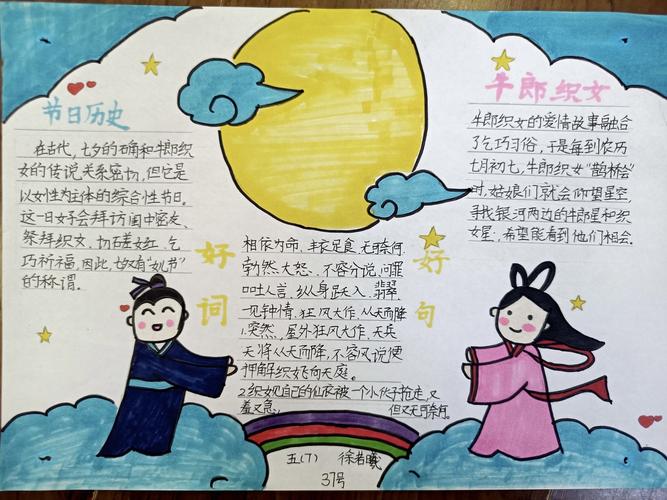 节日历史
在古代，七夕的确和牛郎织
女的传说关系密切，但它是
以女性为主体的综合性节日。
这一日女子会拜访闺中密友、
祭拜织女、切磋女红、乞
巧祈福，因此，七夕有“女儿节”
的称谓。
好词
相依为命、丰衣足食、无可奈何
勃然大怒、不容分说、问罪
口吐人言、纵身跃入、翡翠
一见钟情、狂风大作、从天而降
好句
1.突然，屋外狂风大作，天兵
天将从天而降，不容分说便
押解织女飞向天庭。
2.织女见自己的仙衣被一个小伙子抢走，又
羞又急，但又无可奈何。
牛郎织女
牛郎织女的爱情故事融合
了乞巧习俗，于是每到农历
七月初七，牛郎织女“鹊桥会”
时，姑娘们就会仰望星空，
寻找银河两边的牛郎星和织
女星，希望能看到他们相会。
五(7) 徐若曦
37号